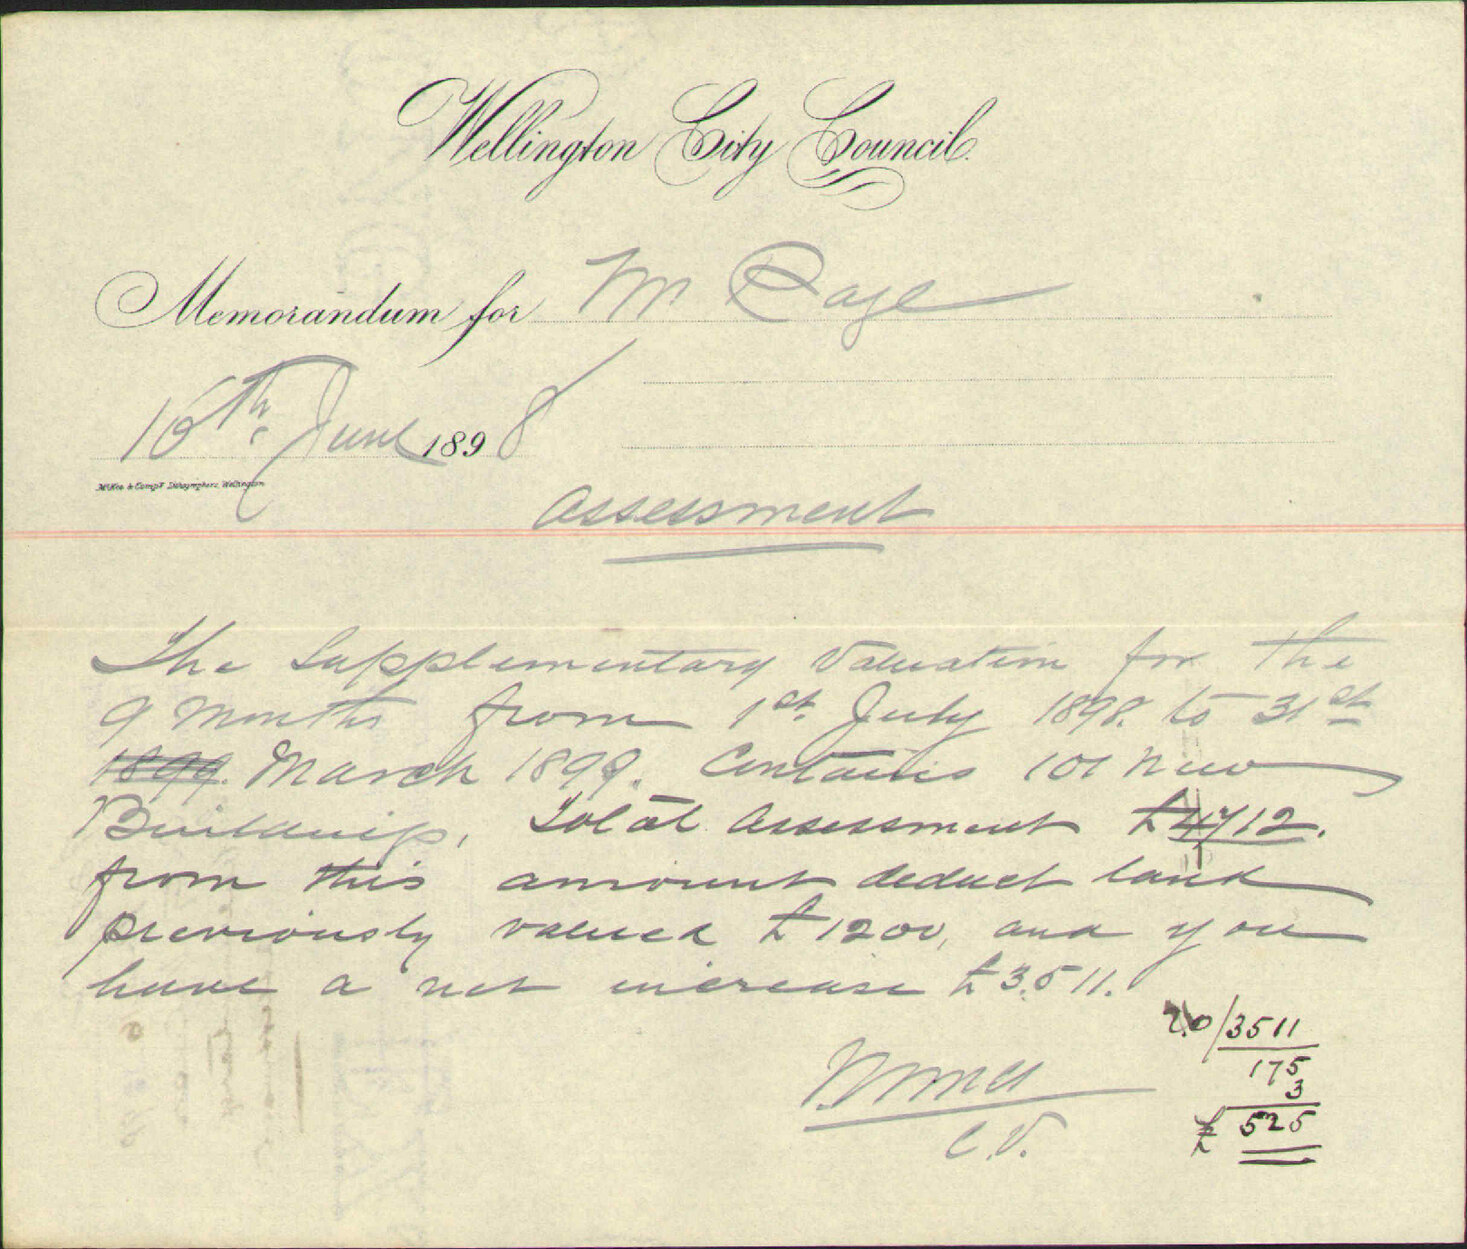 Wellington City Council.
Memorandum for Mr Page
16th June 1898
McKee & Compy Lithographers, Wellington
Assessment
The Supplementary Valuation for the
9 Months from 1st July 1898. to 31st
1899. March 1899. Contains 101 New
Buildings, Total Assessment £4712.
from this amount deduct land
previously valued £1200, and you
have a net increase £3511.
C.V.
20/3511
175
3
£ 525